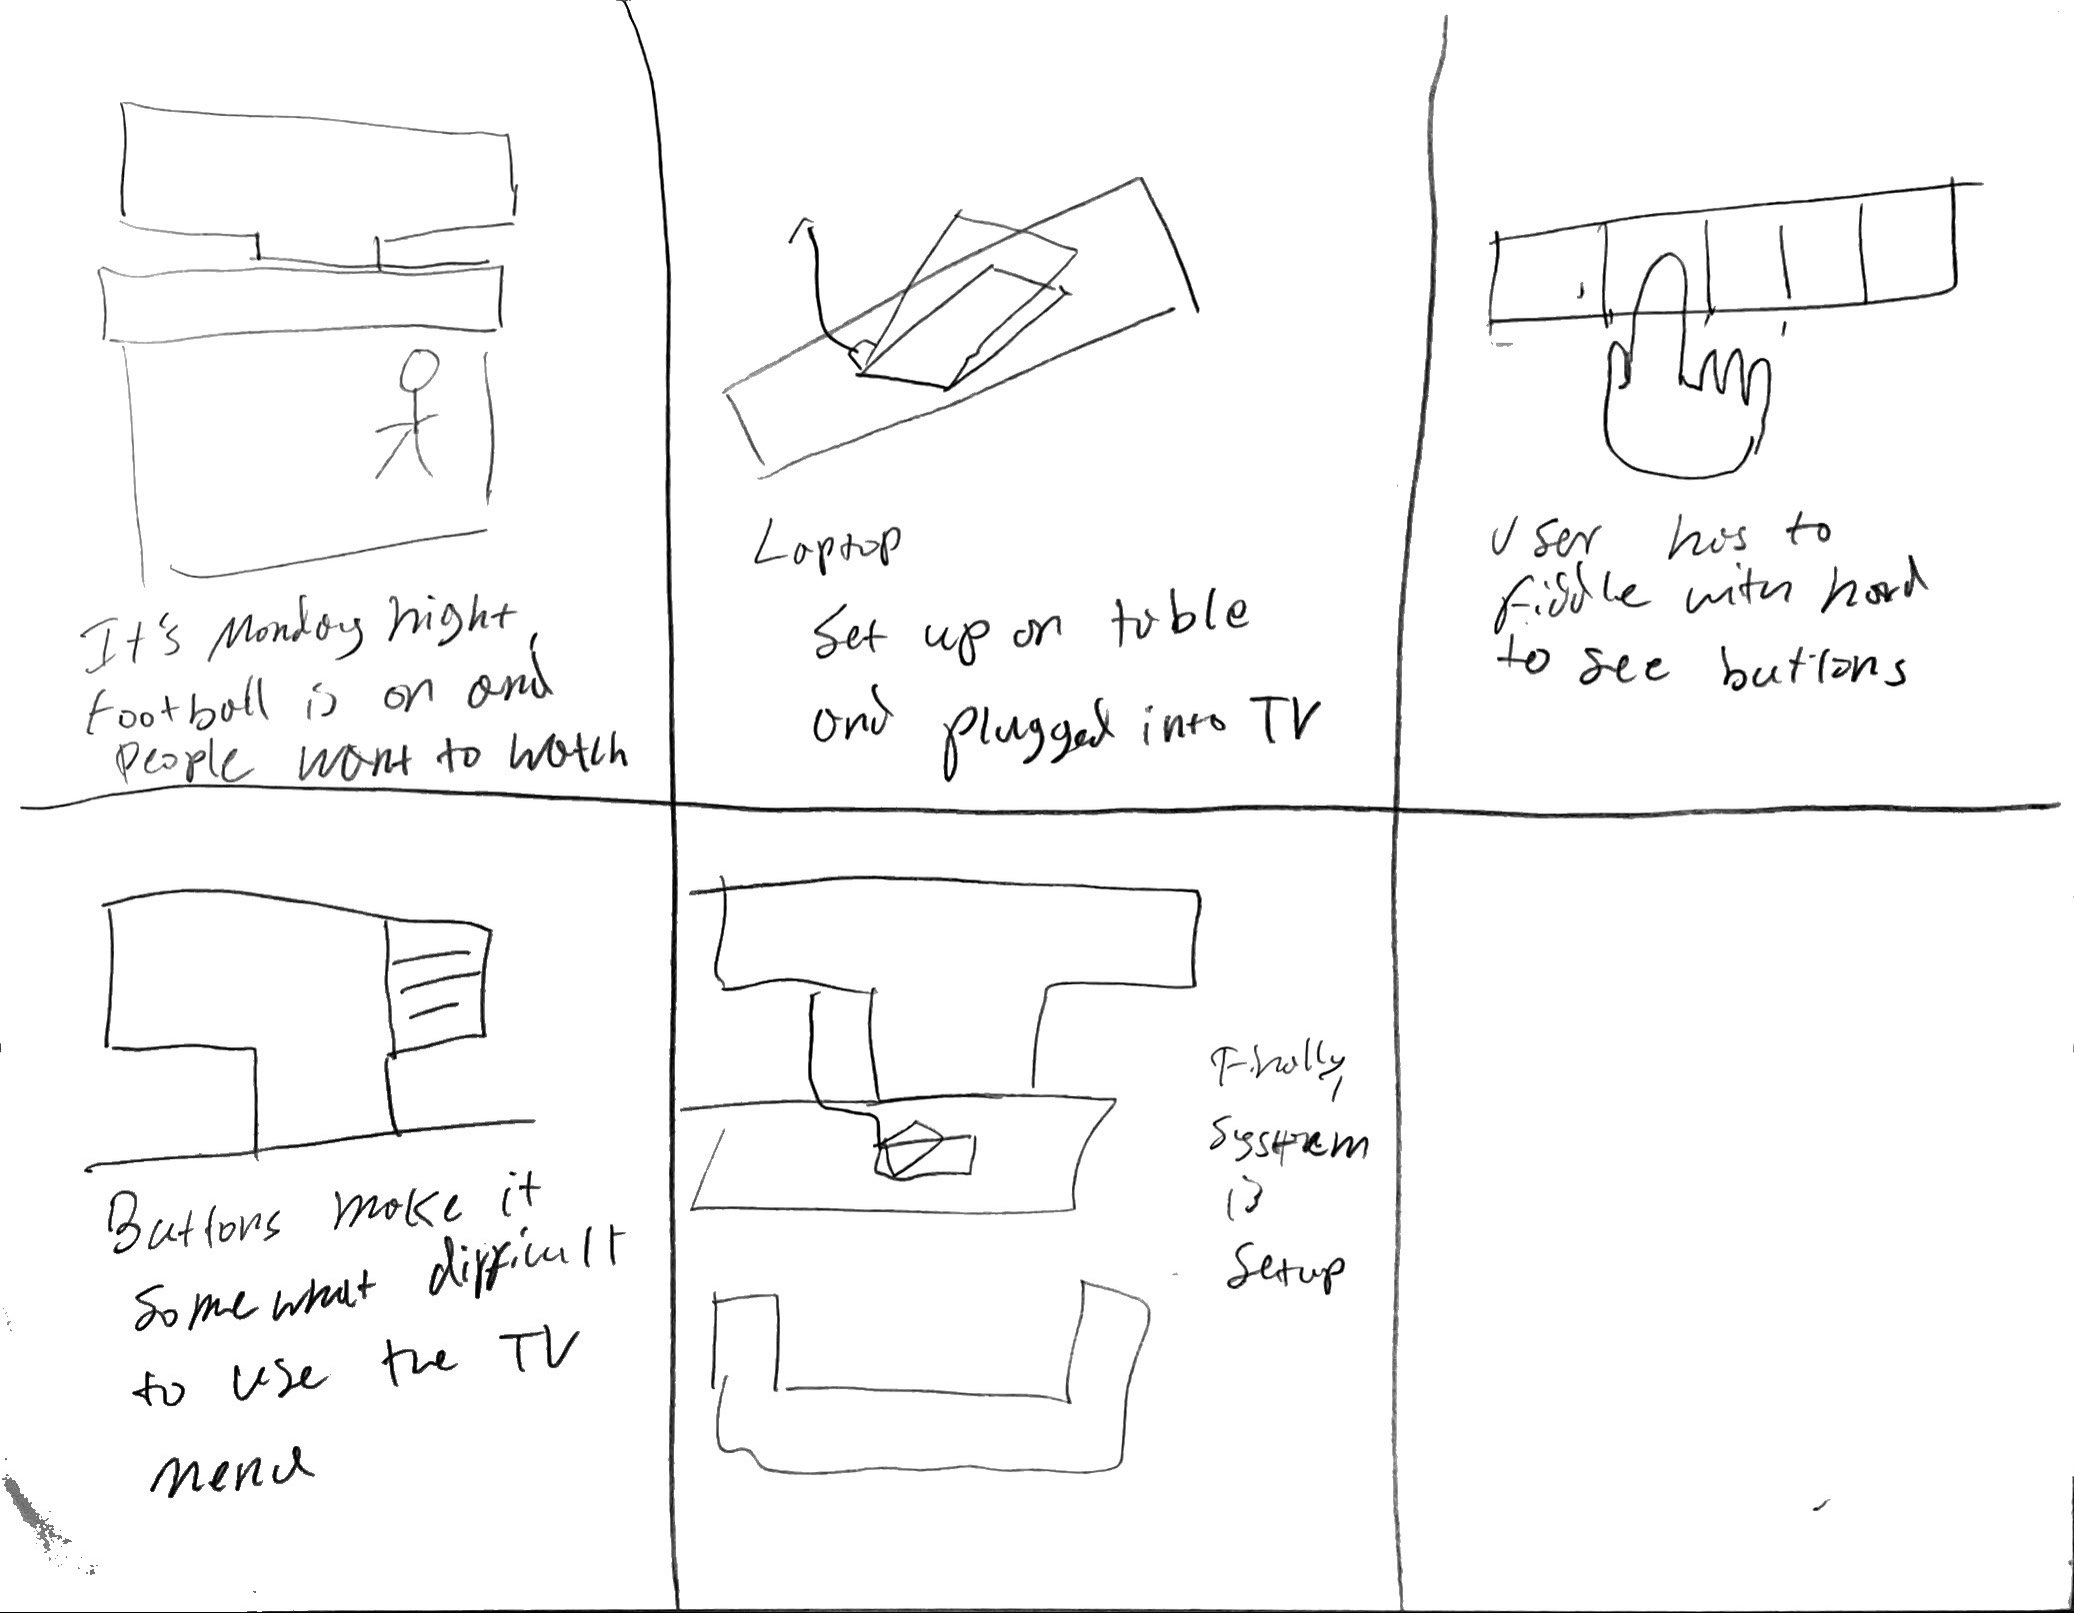 It's Monday night,
Football is on and
people want to watch
Laptop
Set up on table
and plugged into TV
User has to
fiddle with hard
to see buttons
Buttons make it
somewhat difficult
to use the TV
menu
Finally,
system
is
Setup